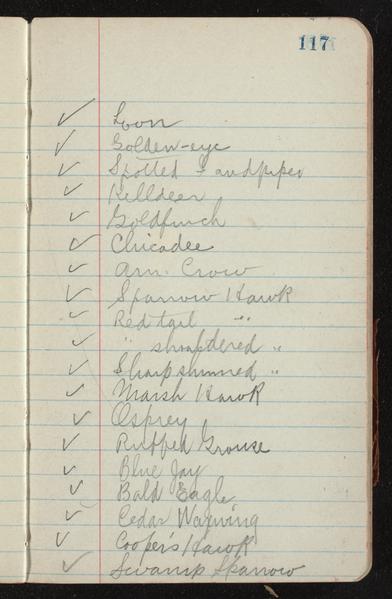 117
Loon
Golden-eye
Spotted Sandpiper
Killdeer
Goldfinch
Chicadee
Am. Crow
Sparrow Hawk
Red tail "
" shouldered "
Sharp shinned "
Marsh Hawk
Osprey
Ruffed Grouse
Blue Jay
Bald Eagle
Cedar Waxwing
Cooper's Hawk
Swamp Sparrow